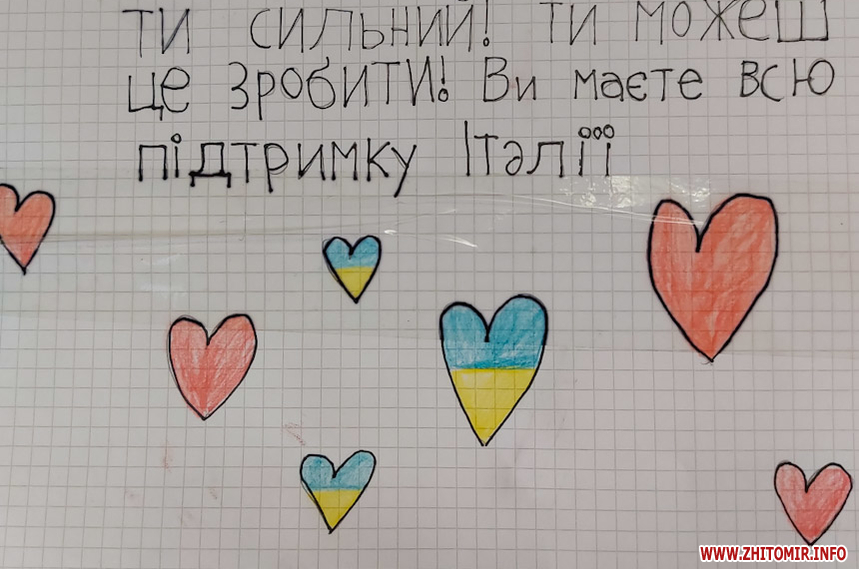 ти сильний! ти можеш
це зробити! Ви маєте всю
підтримку Італії
WWW.ZHITOMIR.INFO